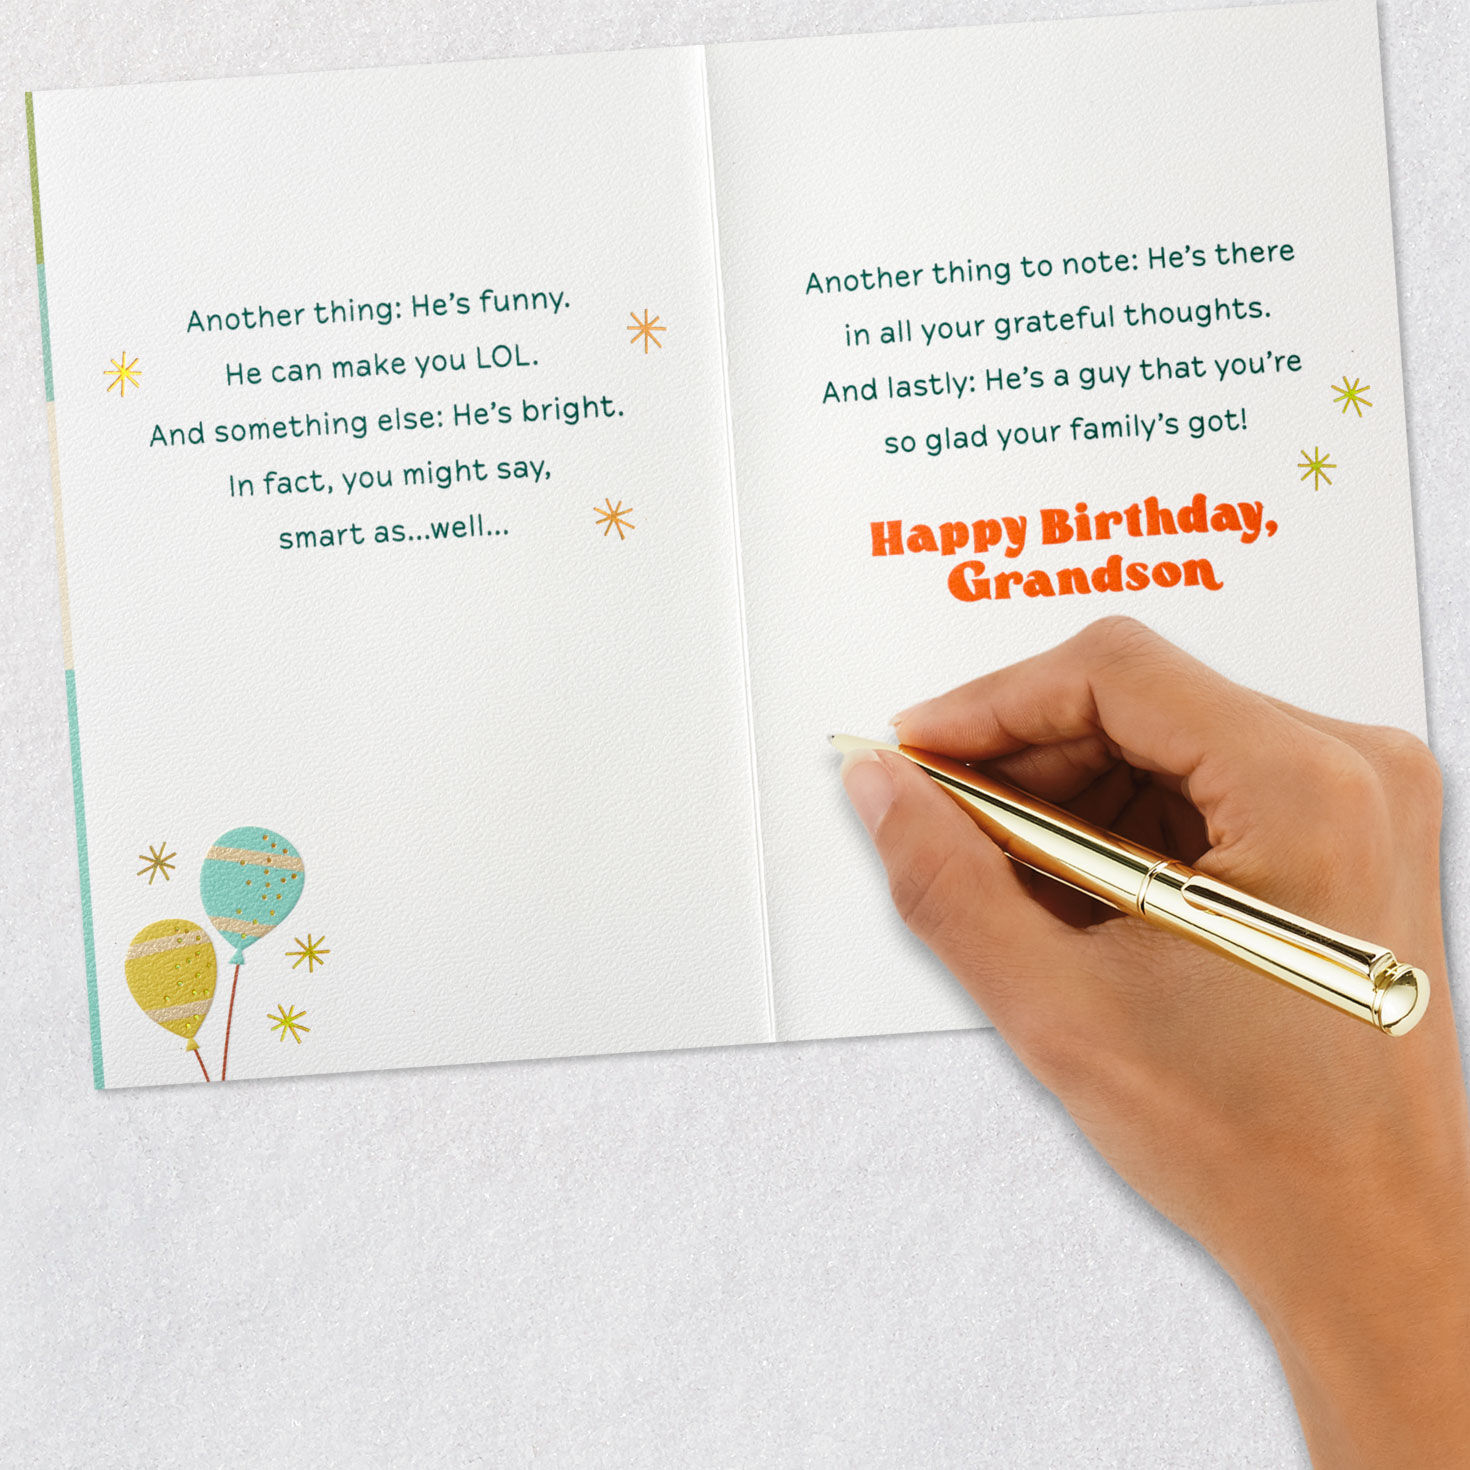 Another thing: He's funny.
He can make you LOL.
And something else: He's bright.
In fact, you might say,
smart as...well...
Another thing to note: He's there
in all your grateful thoughts.
And lastly: He's a guy that you're
so glad your family's got!
Happy Birthday,
Grandson